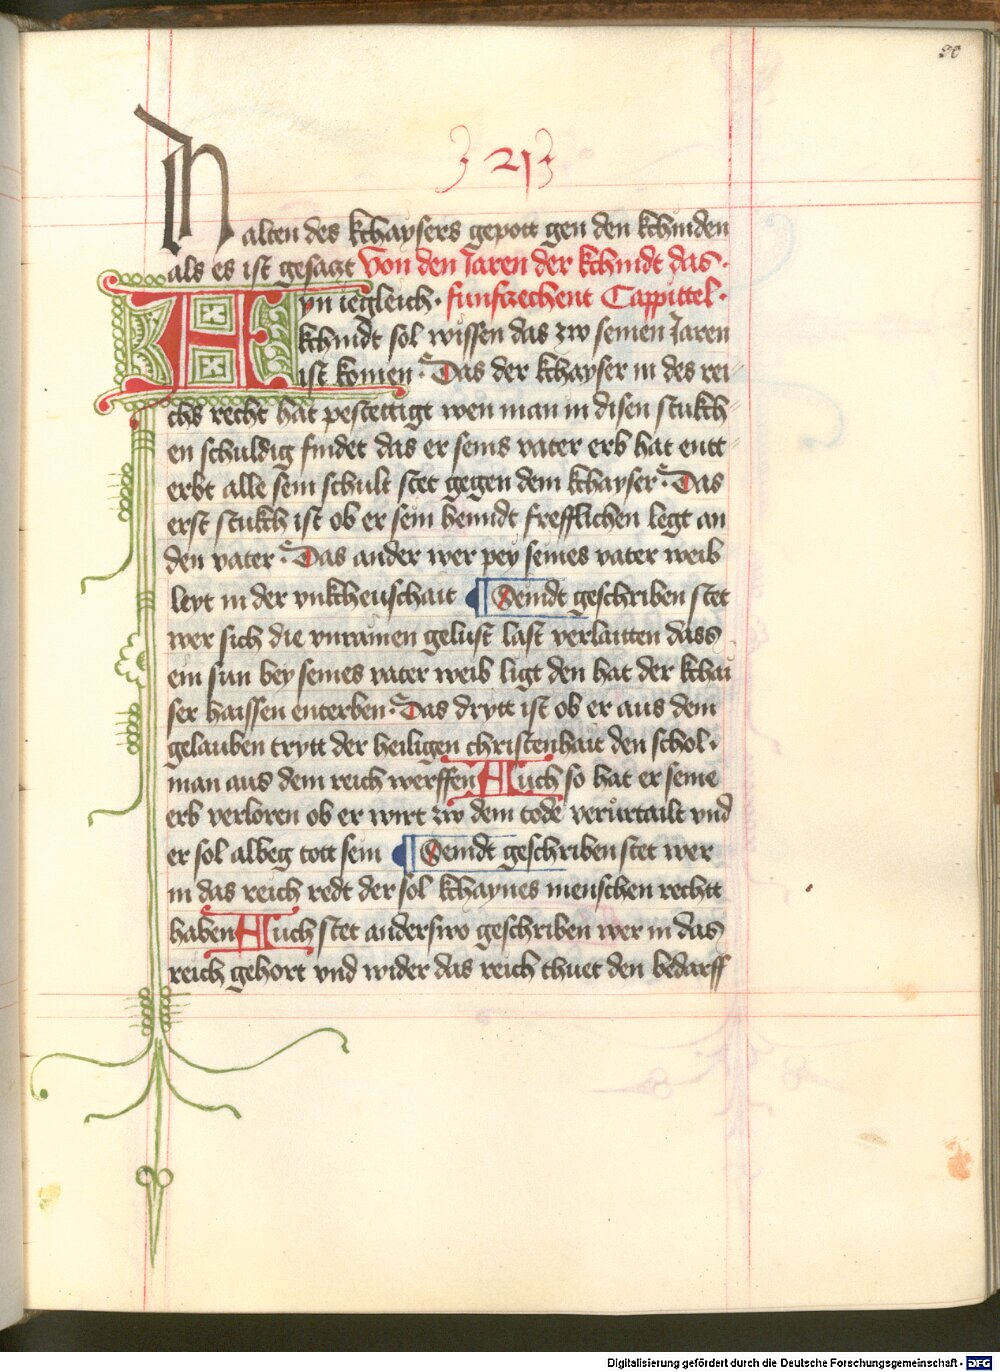 20
21
In alten des kchaysers gepott gen den kchinden
als es ist gesagt Von den Jaren der kchindt das
Ayn iegleich · funfzechent Cappittel ·
kchindt sol wissen das zw seinen Jaren
ist komen · Das der kchayser in des rei
chs recht hat pestettigt wen man in disen stukch
en schuldig findet das er seins vater erb hat entt
erbt alle sein schult stet gegen dem kchayser · Das
erst stukch ist ob er sein henndt frefflichen legt an
den vater · Das ander wer pey seines vater weib
leyt in der vnkcheuschait Seindt geschriben stet
wer sich die vnramen gelust last verlaitten dass
ein sun bey seines vater weib ligt den hat der kchai
ser haissen enterben · Das drytt ist ob er aus dem
gelauben trytt der heiligen christenhait den schol ·
man aus dem reich werffen Auch so hat er seine
erb verloren ob er wirt zw dem tode verurtailt vnd
er sol albeg tott sein Seindt geschriben stet wer
in das reich redt der sol kchaynes menschen rechtt
haben Auch stet anderswo geschriben wer in das
reich gehort vnd wider das reich thuet den bedarff
Digitalisierung gefördert durch die Deutsche Forschungsgemeinschaft - DFG